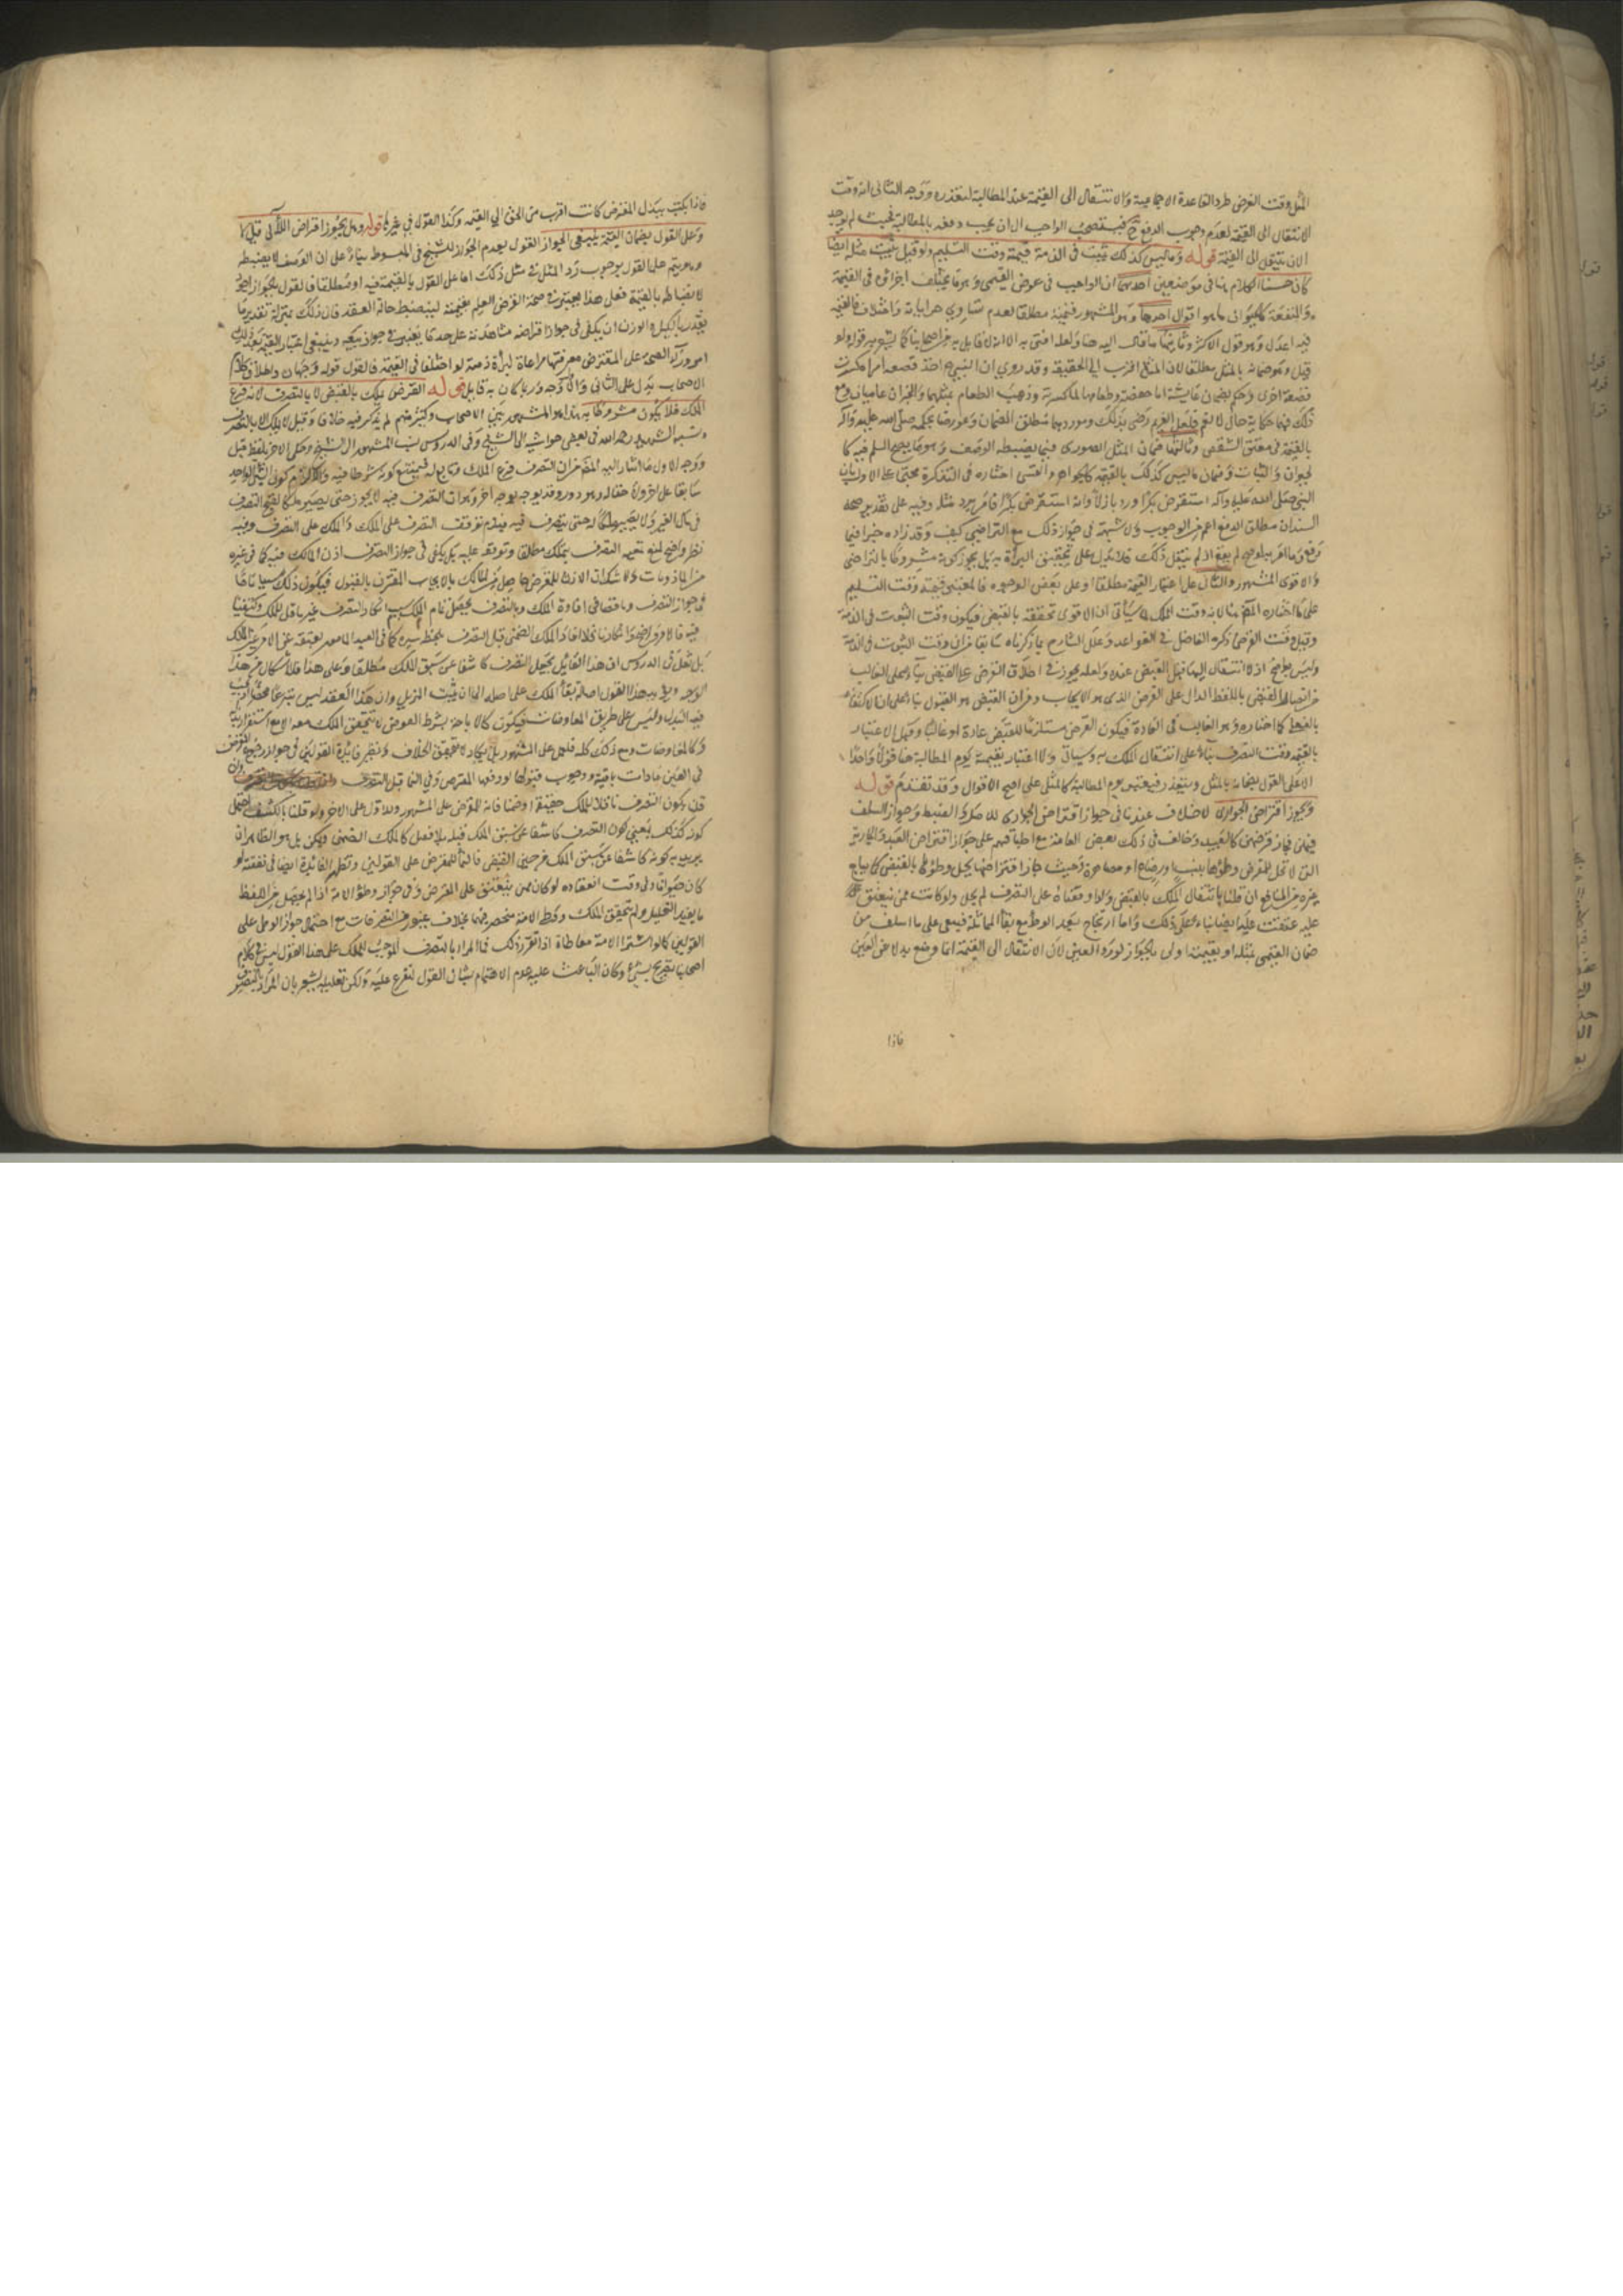 المثل وقت القرض طرد القاعدة الاجماعية والانتقال الى القيمة عند المطالبة لتعذره ووجه الثانى انه وقت
الانتقال الى القيمة لعدم وجوب الدفع ح فيستصحب الواجب الى ان يجب دفعه بالمطالبة فحيث لم يوجد
الان ينتقل الى القيمة قوله وما ليس كذلك يثبت فى الذمة قيمته وقت التسليم ولو قيل يثبت مثله ايضا
كان حسنا الكلام هنا فى موضعين احدهما ان الواجب فى عوض القيمى وهو ما يختلف اجزاؤه فى القيمة
والمنفعة كالحيوان ما هو اقوال احدها وهو المشهور قيمته مطلقا لعدم تساوى جزئياته واختلاف فالقيمة
فيه اعدل وهو قول الاكثر وثانيها ما مال اليه هنا ولعله افتى به الا انه لا قايل به من اصحابنا كما يشعر به قوله ولو
قيل وهو ضمانه بالمثل مطلقا لان المثل اقرب الى الحقيقة وقد روى ان النبى ص اخذ قصعة امراة كسرت
قصعة اخرى وحكم بضمان عايشة اناء حفصة وطعامها لما كسرته وذهب الطعام بمثلهما والخبران عاميان ومع
ذلك فهما حكاية حال لا تعم فلعل الغريم رضى بذلك وموردهما مطلق الضمان وعورضا بحكمه صلى الله عليه وآله
بالقيمة فى معتق الشقص وثالثها ضمان المثل الصورى فيما يضبطه الوصف وهو ما يصح السلم فيه كا
لحيوان والثياب وضمان ما ليس كذلك بالقيمة كالجواهر والقسى اختاره فى التذكرة محتجا على الاول بان
النبى صلى الله عليه وآله استقرض بكرا ورد بازلا وانه استقرض بكرا فامر برد مثله وفيه على تقدير صحة
السند ان مطلق الدفع اعم من الوجوب ولا شبهة فى جواز ذلك مع التراضى كيف وقد زاده خيرا فيما
دفع وما امر به لو صح لم يفد اذ لم ينقل ذلك فلا يدل على تحقيق البراءة به بل يجوز كونه مشروطا بالتراضى
والاقوى المشهور والثانى على اعتبار القيمة مطلقا او على بعض الوجوه فالمعتبر قيمته وقت التسليم
على ما اختاره المص هنا لانه وقت الملك لما سيأتى ان الاقوى تحققه بالقبض فيكون وقت الثبوت فى الذمة
وقيل وقت القرض ذكره الفاضل فى القواعد وعلل الشارح بما ذكرناه سابقا من ان وقت الثبوت فى الذمة
وليس بواضح اذ لا انتقال اليها قبل القبض عنده ولعله يجوز فى اطلاق القرض على القبض بناء على الغالب
من اتصال القبض باللفظ الدال على القرض الذى هو الايجاب ومن ان القبض هو القبول بناء على ان الاكتفاء
بالفعلى كما اختاره وهو الغالب فى العادة فيكون القرض مستلزما للقبض عادة او غالبا وقيل الاعتبار
بالقيمة وقت التصرف بناء على انتقال الملك به وسياتى ولا اعتبار بقيمة يوم المطالبة هنا قولا واحدا
الا على القول بضمانه بالمثل ويتعذر فيعتبر يوم المطالبة كالمثلى على اصح الاقوال وقد تقدم قوله
ويجوز اقتراض الجوارى لا خلاف عندنا فى جواز اقتراض الجوارى للاصل والضبط وجواز السلف
فيهن فجاز قرضهن كالعبيد وخالف فى ذلك بعض العامة مع اطباقهم على جواز اقتراض العبيد والجارية
التى لا تحل للمقترض وطؤها بنسب او رضاع او مصاهرة وحيث جاز اقتراضها يحل وطؤها بالقبض كما يباح
غيره من المنافع ان قلنا بانتقال الملك بالقبض ولو اوقفناه على التصرف لم يحل ولو كانت ممن ينعتق
عليه عتقت عليه ايضا بناء على ذلك واما ارتجاع بعيد الوطؤ مع بقاء المماثلة فيبنى على ما اسلف من
ضمان القيمى بمثله او بقيمته اولى بالجواز لو رد العين لان الانتقال الى القيمة انما وضع بدلا عن العين
فاذا
فاذا بكت ببذل المقرض كانت اقرب من الحق الى القيمة وكذا القول فى غيرها قوله وهل يجوز اقراض اللآلى قيل لا
وعلى القول بضمان القيمة ينبغى الجواز القول بعدم الجواز للشيخ فى المبسوط بناء على ان الوصف لا يضبطه
وهو يتم على القول بوجوب رد المثل فى مثل ذلك اما على القول بالقيمة فيه او مطلقا فالقول بالجواز اصح
لانضباطه بالقيمة فعلى هذا يعتبر فى صحة القرض العلم بقيمته لينضبط حالة العقد فان ذلك بمنزلة تقدير ما
يقدر بالكيل والوزن ان يكفى فى جواز اقراضه مشاهدته على حد ما يعتبر فى جواز بيعه وينبغى اعتبار القيمة بعد ذلك
امر وراء الصحة على المقترض معرفتها مراعاة لبراءة ذمته لو اختلفا فى القيمة فالقول قوله وجهان واطلاق كلام
الاصحاب يدل على الثانى والاول اوجه وربما كان به قايل قوله القرض يملك بالقبض لا بالتصرف لانه فرع
الملك فلا يكون مشروطا به هذا هو المشهور بين الاصحاب وكثير منهم لم يذكر فيه خلافا وقيل لا يملك الا بالتصرف
ونسبه الشهيد رحمه الله فى بعض حواشيه الى الشيخ وفى الدروس نسب المشهور الى الشيخ وحكى الاخر بلفظ قيل
ووجه الاول ما اشار اليه المص من ان التصرف فرع الملك وتابع له فيمتنع كونه شرطا فيه والا لزم كون الشئ الواحد
سابقا على اخر ولاحقا له وهو دور وقد يوجه بوجه اخر وهو ان التصرف فيه لا يجوز حتى يصير ملكا لقبح التصرف
فى مال الغير ولا يصير ملكا له حتى يتصرف فيه فيلزم توقف التصرف على الملك والملك على التصرف وفيه
نظر واضح لمنع تبعية التصرف للملك مطلقا وتوقفه عليه بل يكفى فى جواز التصرف اذن المالك فيه كما فى غيره
من الماذونات ولا شك ان الاذن للمقترض حاصل من المالك بالايجاب المقترن بالقبول فيكون ذلك سببا تاما
فى جواز التصرف وناقصا فى افادة الملك وبالتصرف يحصل تمام
فيه فالامر واضح وان كان ناقلا افاد الملك الضمنى قبل التصرف بلحظة يسيرة كما فى العبد المامور بعتقه عن الامر غير المالك
بل نقل فى الدروس ان هذا القايل يجعل التصرف كاشفا عن سبق الملك مطلقا وعلى هذا فلا اشكال من هذا
الوجه ويؤيد هذا القول اصالة بقاء الملك على اصله الى ان يثبت المزيل وان هذا العقد ليس تبرعا محضا اذ يجب
فيه البدل وليس على طريق المعاوضات فيكون كالاباحة بشرط العوض لا يتحقق الملك معه الا مع استقرار بدله
وكالمعاوضات ومع ذلك كله فالعمل على المشهور بل يكاد لا يتحقق الخلاف وتظهر فائدة القولين فى جواز رجوع المقرض
فى العين ما دامت باقية ووجوب قبولها لو دفعها المقترض وفى النما قبل التصرف وان
قلنا بكون التصرف ناقلا للملك حقيقة او ضمنا فانه للمقترض على المشهور وللاول على الاخر ولو قلنا بالكشف احتمل
كونه كذلك بمعنى كون التصرف كاشفا عن سبق الملك قبله بلا فصل كالملك الضمنى ويمكن بل هو الظاهر ان
يريد به كونه كاشفا عن سبق الملك من حين القبض فالنما للمقترض على القولين وتظهر الفائدة ايضا فى نفقته لو
كان حيوانا وفى وقت انعتاقه لو كان ممن ينعتق على المقترض وفى جواز وطؤ الامة اذا لم يحصل من اللفظ
ما يفيد التحليل ولم يتحقق الملك وكذا الامة منحصر فيهما بخلاف غيره من التصرفات مع احتمال جواز الوطى على
القولين كما لو اشترى الامة معاطاة اذا تقرر ذلك فما المراد بالتصرف الموجب للملك على هذا القول ليس فى كلام
اصحابنا تصريح بشئ وكان الباعث عليه عدم الاهتمام بشان القول لتفرع عليه ولكن تعليله يشعر بان المراد بالتصرف